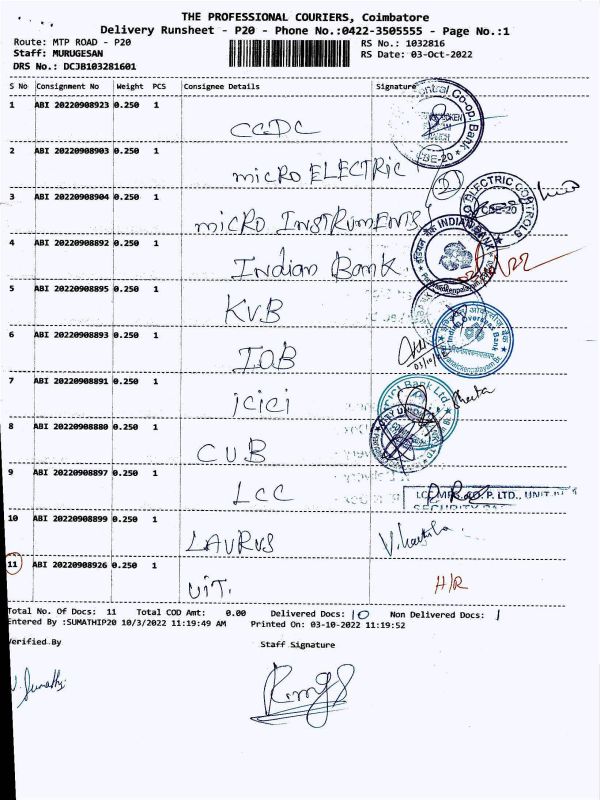 THE PROFESSIONAL COURIERS, Coimbatore
Delivery Runsheet - P20 - Phone No.:0422-3505555 - Page No.:1
Route: MTP ROAD - P20
RS No.: 1032816
Staff: MURUGESAN
RS Date: 03-Oct-2022
DRS No.: DCJB103281601
S No Consignment No Weight PCS Consignee Details Signature
1 ABI 20220908923 0.250 1
CCDC
Central Co-op. Bank
CBE-20
2 ABI 20220908903 0.250 1
micRO ELECTRIC
3 ABI 20220908904 0.250 1
micRO INSTRUMENTS
ELECTRIC CONTROLS
CBE-20
4 ABI 20220908892 0.250 1
Indian Bank
इंडियन बैंक INDIAN BANK
5 ABI 20220908895 0.250 1
KVB
6 ABI 20220908893 0.250 1
IOB
Indian Overseas Bank
7 ABI 20220908891 0.250 1
icici
Bank Ltd.
8 ABI 20220908880 0.250 1
CUB
CITY UNION
9 ABI 20220908897 0.250 1
LCC
LCC MFG. CO. P. LTD., UNIT
10 ABI 20220908899 0.250 1
LAURUS
11 ABI 20220908926 0.250 1
UIT.
H/R
Total No. Of Docs: 11 Total COD Amt: 0.00 Delivered Docs: 10 Non Delivered Docs: 1
Entered By :SUMATHIP20 10/3/2022 11:19:49 AM Printed On: 03-10-2022 11:19:52
Verified By
Staff Signature
V. Sumathi